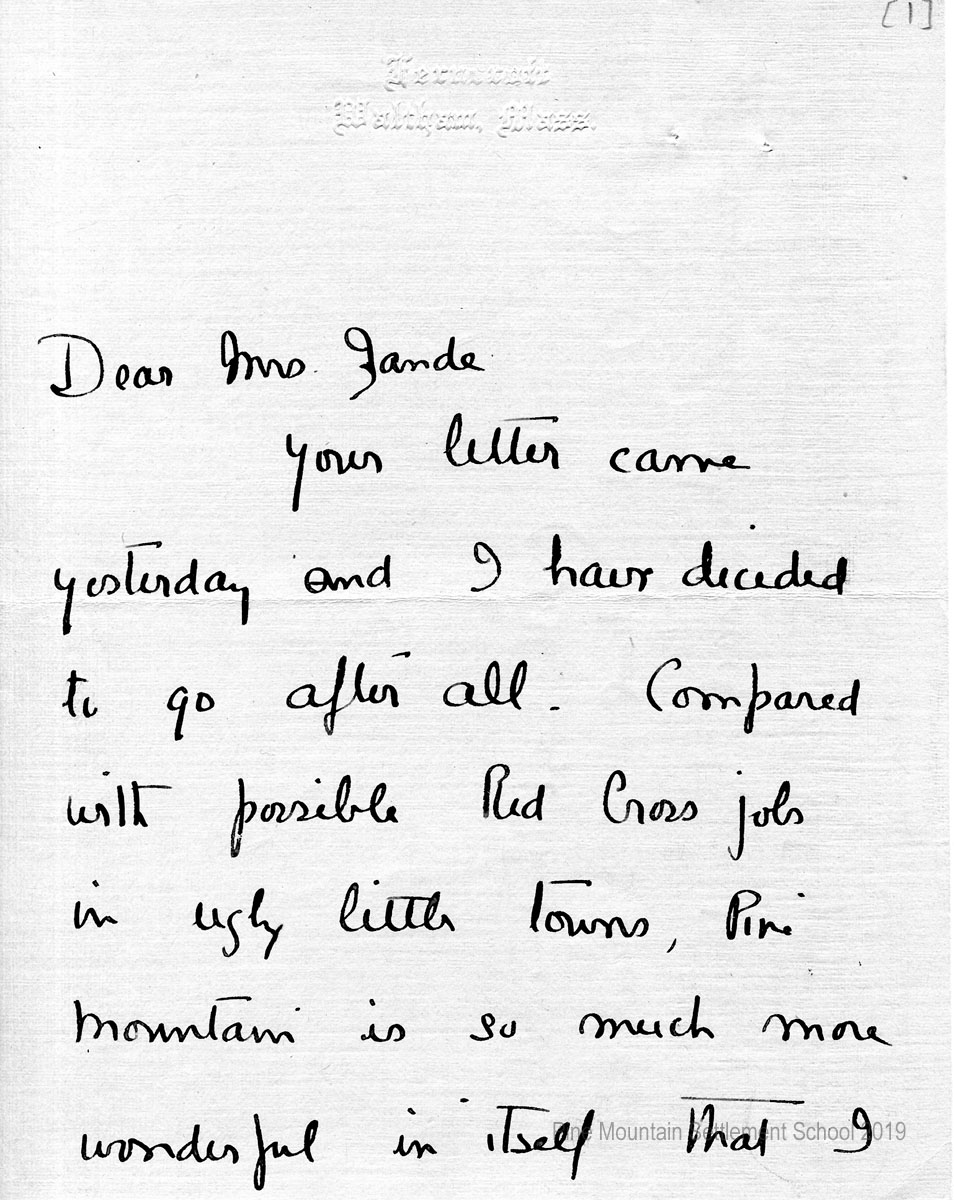 [1]
Waltham, Mass.
Dear Mrs. Zande
your letter came
yesterday and I have decided
to go after all. Compared
with possible Red Cross jobs
in ugly little towns, Pine
Mountain is so much more
wonderful in itself that I
Pine Mountain Settlement School 2019